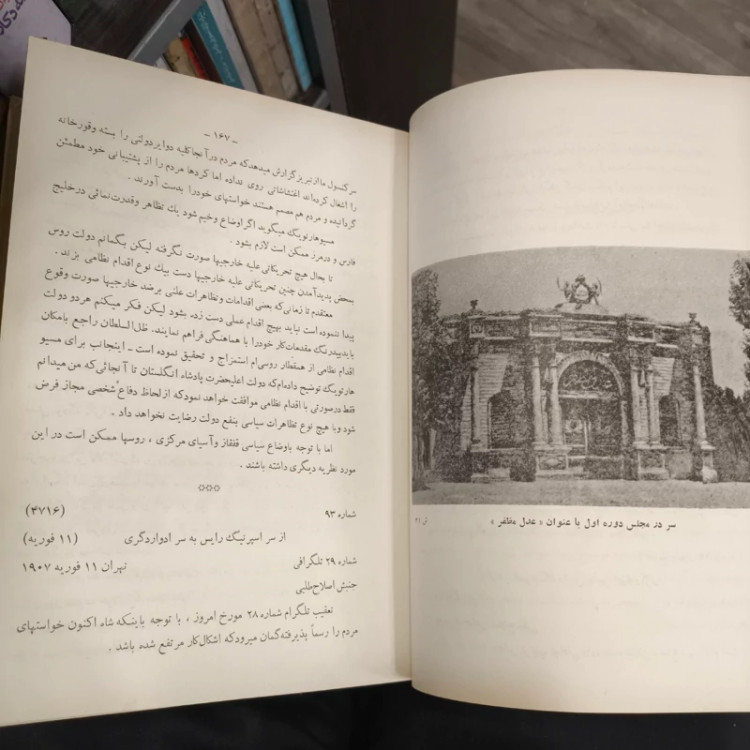 - ۱۶۷ -
سرکنسول ما از تبریز گزارش میدهد که مردم در آنجا کلیه دوایر دولتی را بسته و قورخانه
را اشغال کرده‌اند اغتشاشاتی روی نداده اما کردها مردم را از پشتیبانی خود مطمئن
گردانیده و مردم هم مصمم هستند خواستهای خود را بدست آورند .
مسیو هارتویک میگوید اگر اوضاع وخیم شود یک تظاهر و قدرت نمائی در خلیج
فارس و در مرز ممکن است لازم بشود .
تا بحال هیچ تحریکاتی علیه خارجیها صورت نگرفته لیکن بگمانم دولت روس
بمحض پدید آمدن چنین تحریکاتی علیه خارجیها دست بیک نوع اقدام نظامی بزند .
معتقدم تا زمانی که بعضی اقدامات و تظاهرات علنی بر ضد خارجیها صورت وقوع
پیدا ننموده است نباید بهیچ اقدام عملی دست زد. بشود لیکن فکر میکنم هر دو دولت
باید بیدرنگ مقدمات کار خود را با هماهنگی فراهم نمایند. ظل السلطان راجع بامکان
اقدام نظامی از همقطار روسی‌ام استمزاج و تحقیق نموده است ـ اینجانب برای مسیو
هارتویک توضیح داده‌ام که دولت اعلیحضرت پادشاه انگلستان تا آنجائی که من میدانم
فقط در صورتی با اقدام نظامی موافقت خواهد نمود که از لحاظ دفاع شخصی مجاز فرض
شود و با هیچ نوع تظاهرات سیاسی بنفع دولت رضایت نخواهد داد .
اما با توجه باوضاع سیاسی قفقاز و آسیای مرکزی ، روسها ممکن است در این
مورد نظریه دیگری داشته باشند .
شماره ۹۳ (۴۷۱۶)
از سر اسپرنیک رایس به سر ادوارد گری (۱۱ فوریه)
شماره ۲۹ تلگرافی تهران ۱۱ فوریه ۱۹۰۷
جنبش اصلاح‌طلبی
تعقیب تلگرام شماره ۲۸ مورخ امروز ، با توجه باینکه شاه اکنون خواستهای
مردم را رسماً پذیرفته گمان میرود که اشکال کار مرتفع شده باشد .
سر در مجلس دوره اول با عنوان « عدل مظفر »